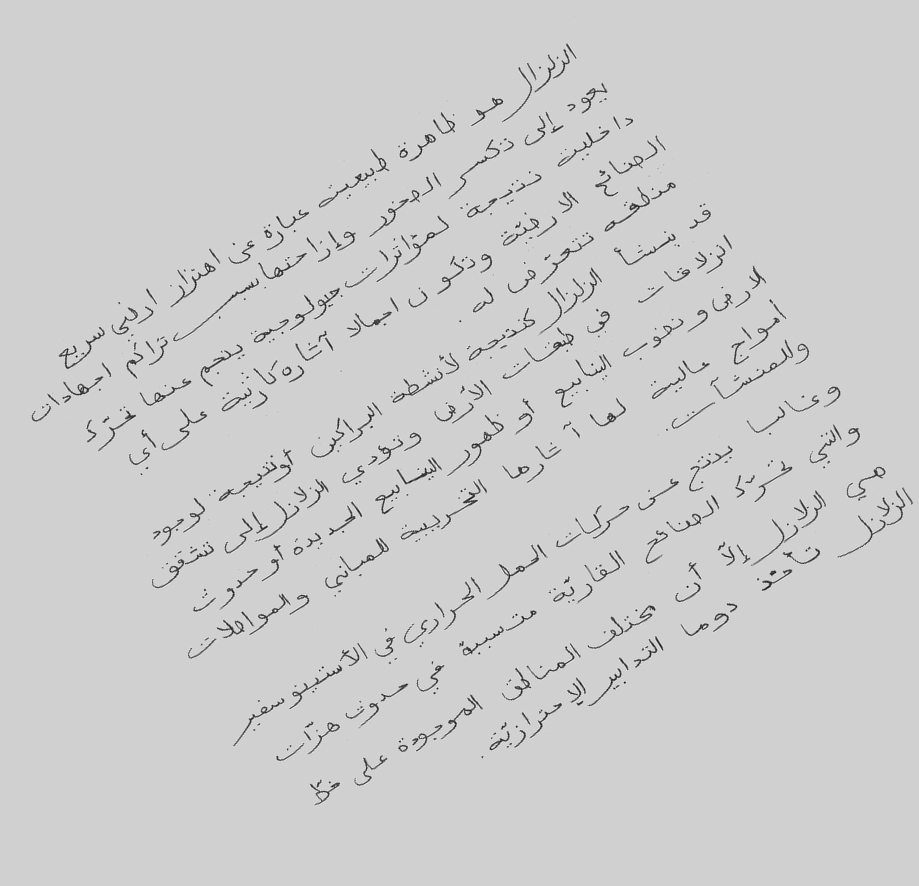 الزلزال هو ظاهرة طبيعية عبارة عن اهتزاز ارضي سريع
يعود إلى تكسر الصخور وإزاحتها بسبب تراكم اجهادات
داخلية نتيجة لمؤاثرات جيولوجية ينجم عنها تحرّك
الصفائح الارضيّة وتكون اجمالا آثاره كارثية على أي
منطقه تتعرّض له .
قد ينشأ الزلزال كنتيجة لأنشطة البراكين أونتيجة لوجود
انزلاقات في طبقات الأرض وتؤدي الزلازل إلى تشقق
الارض و نضوب الينابيع أو ظهور الينابيع الجديدة أو حدوث
أمواج عالية لها آثارها التخريبية للمباني والمواصلات
وللمنشآت.
وغالبا ينتج عن حركيات الحمل الحراري في الأستينوسفير
والتي تحرّك الصفائح القاريّة متسببة في حدوث هزّات
هي الزلازل إلاّ أن مختلف المناطق الموجودة على خطّ
الزلازل تأخذ دوما التدابير الإحترازيّة.